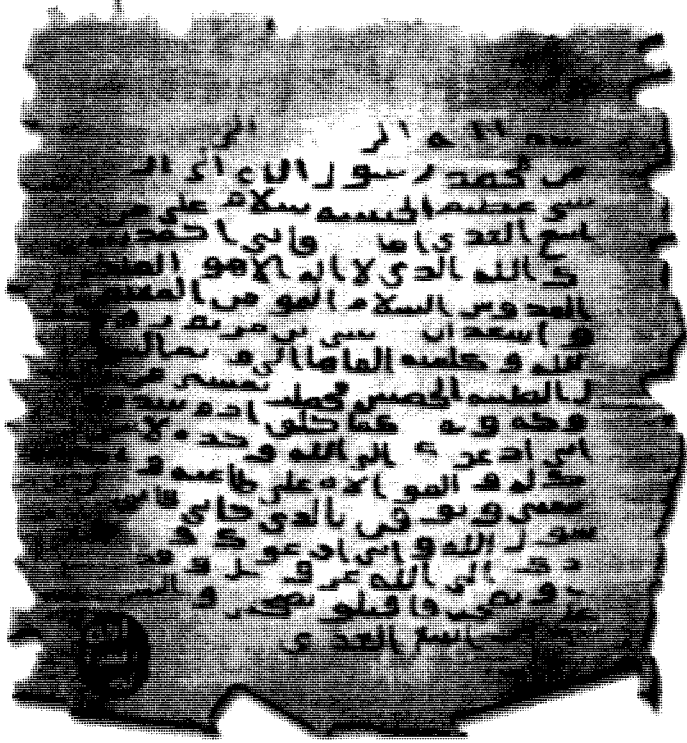 سم الله الر الر
من محمد رسول الله الى ال
شي عظيم الحبشة سلام على من
اتبع الهدى اما فاني احمد
ك الله الذي لا اله الا هو الملك
القدوس السلام المومن المهيمن
و اشهد ان عيسى بن مريم
الله و كلمته القاها الى مريم
ل الطيبة الحصينة فحملت بعيسى من
كما خلق ادم بيده
اني ادعو الى الله وحده لا
له و الموالاه على طاعته و
تتبعني و توقن بالذي جاني فاني
سول الله و اني ادعوك و
الى الله عز و جل و قد
و نصحت فاقبلو نصحي و السلم
على من اتبع الهدى